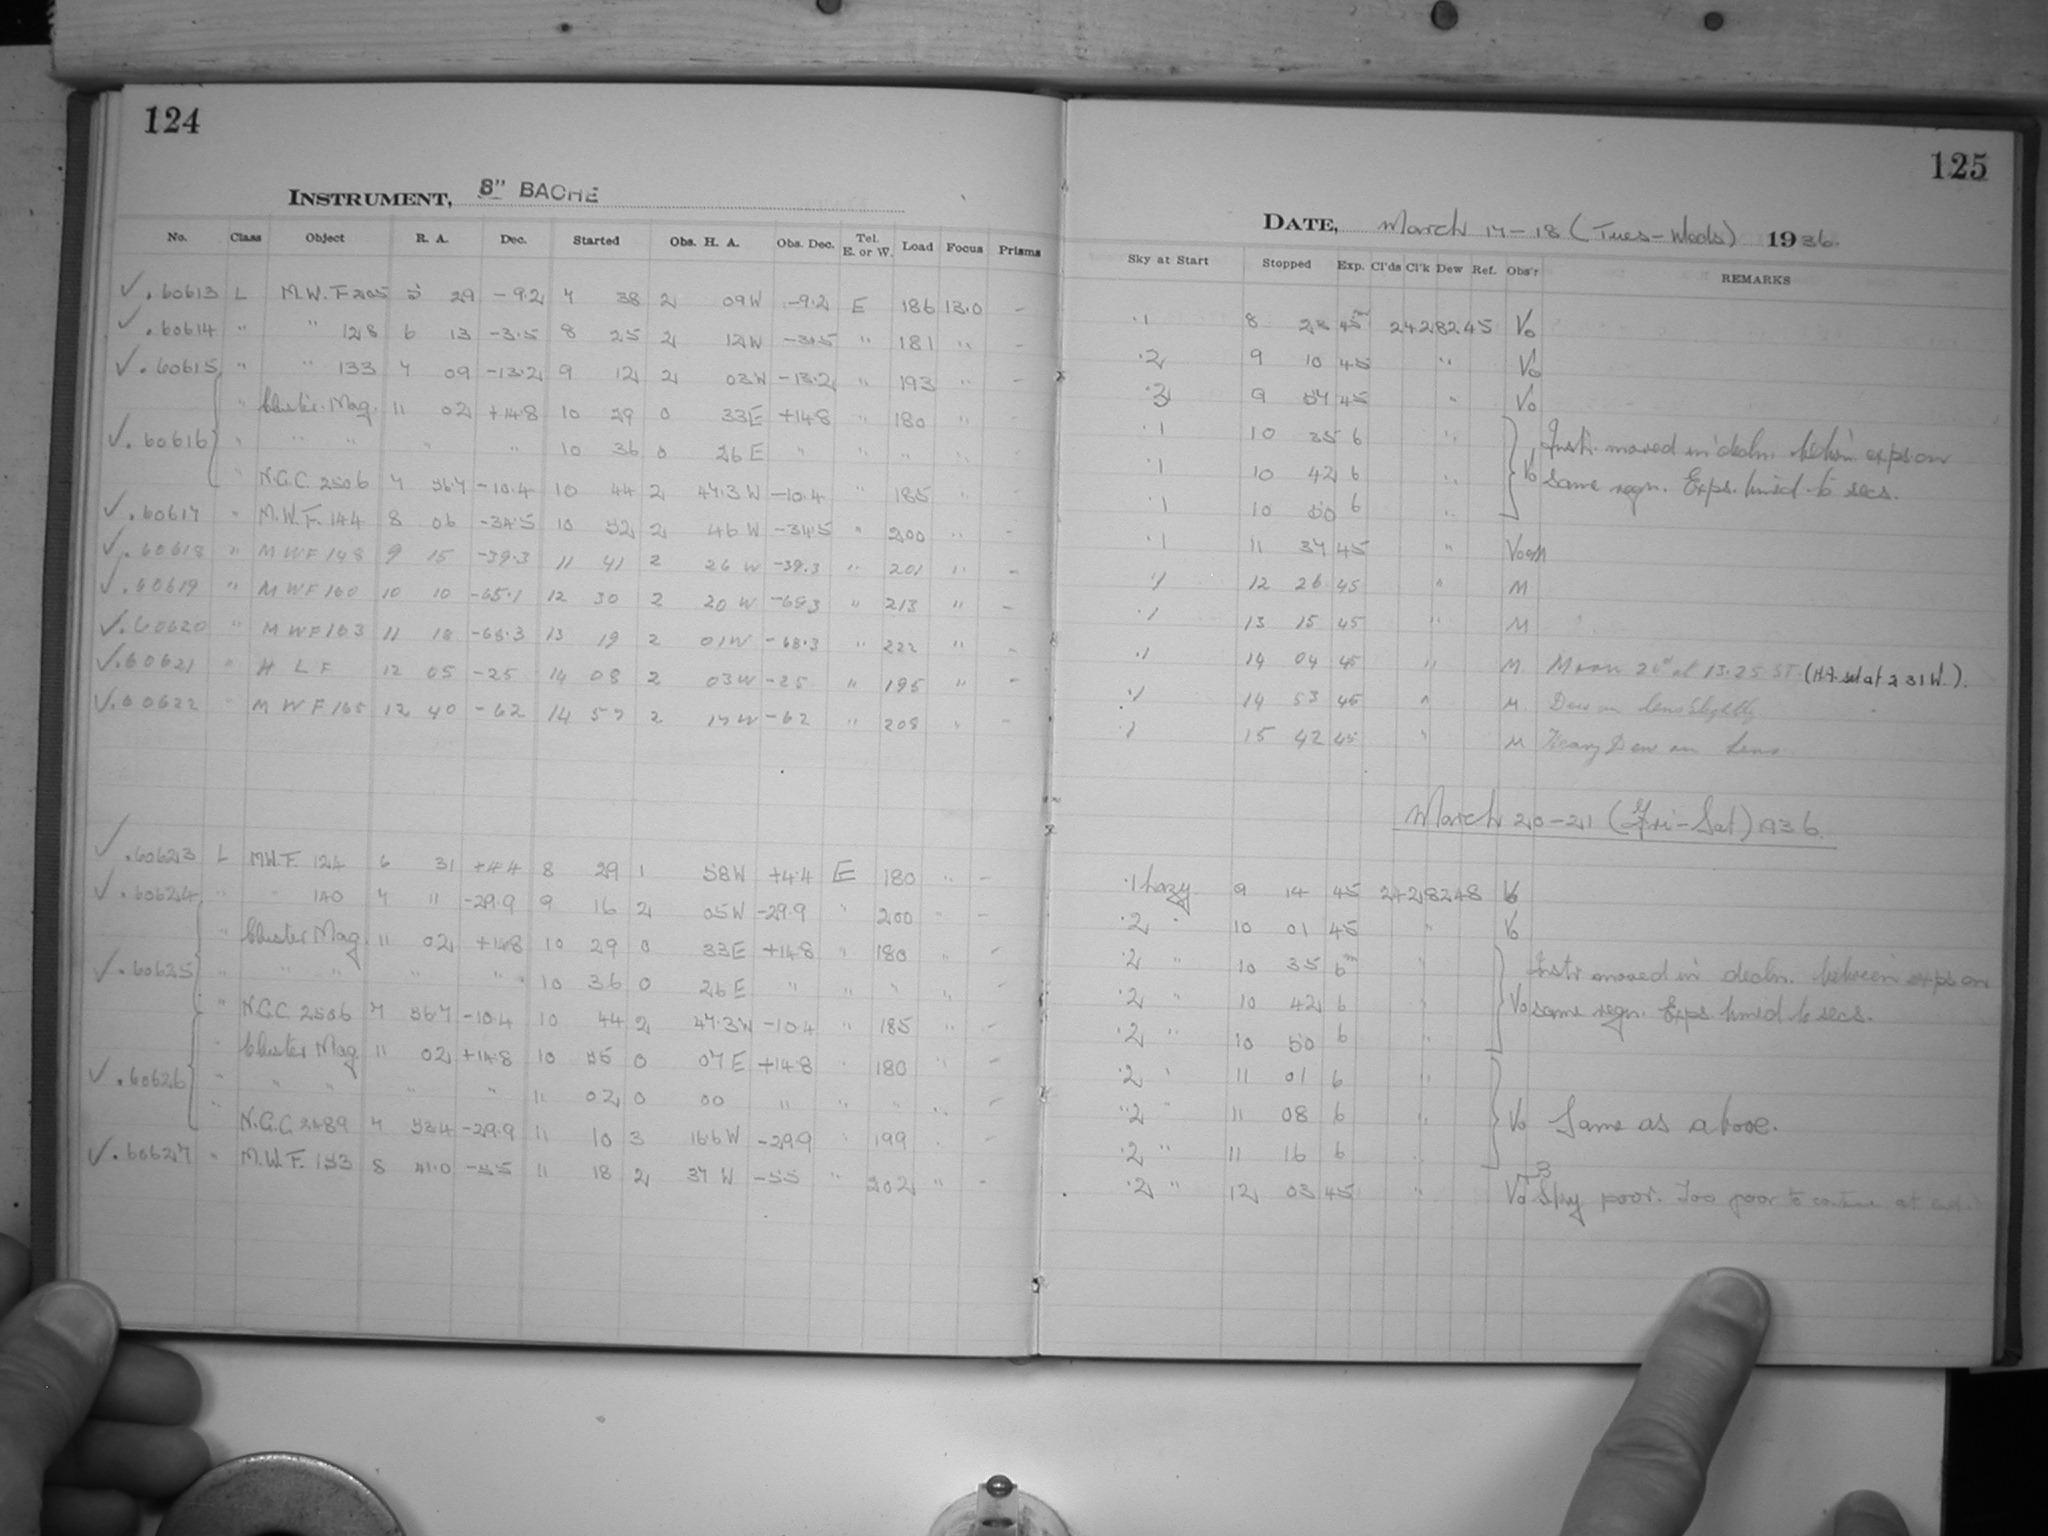 124
INSTRUMENT, 8" BACHE
No. Class Object R. A. Dec. Started Obs. H. A. Obs. Dec. Tel. E. or W. Load Focus Prisms
✓ .60613 L M.W.F 205 5 29 -9.2 7 38 2 09W -9.2 E 186 13.0 -
✓ .60614 " " 128 6 13 -3.5 8 25 2 12W -3.5 " 181 " -
✓ .60615 " " 133 7 09 -13.2 9 12 2 03W -13.2 " 193 " -
" Cluster Mag. 11 02 +14.8 10 29 0 33E +14.8 " 180 " -
✓ .60616 " " " " " 10 36 0 26E " " " "
" N.G.C. 2506 7 56.7 -10.4 10 44 2 47.3W -10.4 " 185 " -
✓ .60617 " M.W.F. 144 8 06 -34.5 10 52 2 46W -34.5 " 200 " -
✓ .60618 " MWF 148 9 15 -39.3 11 41 2 26W -39.3 " 201 " -
✓ .60619 " MWF 160 10 10 -65.1 12 30 2 20W " 213 " -
✓ .60620 " MWF 163 11 18 -68.3 13 19 2 01W -68.3 " 222 " -
✓ .60621 " H L F 12 05 -25 14 08 2 03W -25 " 195 " -
✓ .60622 " MWF 165 12 40 -62 14 57 2 17W -62 " 208 " -
✓ .60623 L M.W.F. 124 6 31 +4.4 8 29 1 58W +4.4 E 180 " -
✓ .60624 " " 140 7 11 -29.9 9 16 2 05W -29.9 " 200 " -
" Cluster Mag. 11 02 +14.8 10 29 0 33E +14.8 " 180 " -
✓ .60625 " " " " " 10 36 0 26E " " " " -
" N.G.C. 2506 7 56.7 -10.4 10 44 2 47.3W -10.4 " 185 " -
" Cluster Mag. 11 02 +14.8 10 55 0 07E +14.8 " 180 " -
✓ .60626 " " " " " 11 02 0 00 " " " " -
" N.G.C. 2489 7 53.4 -29.9 11 10 3 16.6W -29.9 " 199 " -
✓ .60627 " M.W.F. 153 8 41.0 -55 11 18 2 37W -55 " 202 " -
125
DATE, March 17-18 (Tues-Weds) 1936.
Sky at Start Stopped Exp. Cl'ds Cl'k Dew Ref. Obs'r REMARKS
.1 8 23 45m 2428245 Vo
.2 9 10 45 " Vo
.3 9 57 45 " Vo
.1 10 35 6 " Instr. moved in decln. betw'n. exps on
.1 10 42 6 " Vo same regn. Exps. timed to secs.
.1 10 50 6 "
.1 11 37 45 "
.1 12 26 45 " M
.1 13 15 45 " M
.1 14 04 45 " M. Moon at 13.25 ST. (H.A. set at 2 31W.).
.1 14 53 45 " M. Dew on lens slightly
.1 15 42 45 " M Heavy Dew on Lens
March 20-21 (Fri-Sat) 1936.
.1 hazy 9 14 45 2428248 Vo
.2 " 10 01 45 " Vo
.2 " 10 35 6m " Instr moved in decln. between exps on
.2 " 10 42 6 " Vo same regn. Exps. timed to secs.
.2 " 10 50 6 "
.2 " 11 01 6 "
.2 " 11 08 6 " Vo Same as above.
.2 " 11 16 6 "
.2 " 12 03 45 " Vo Sky poor. Too poor to continue at end.